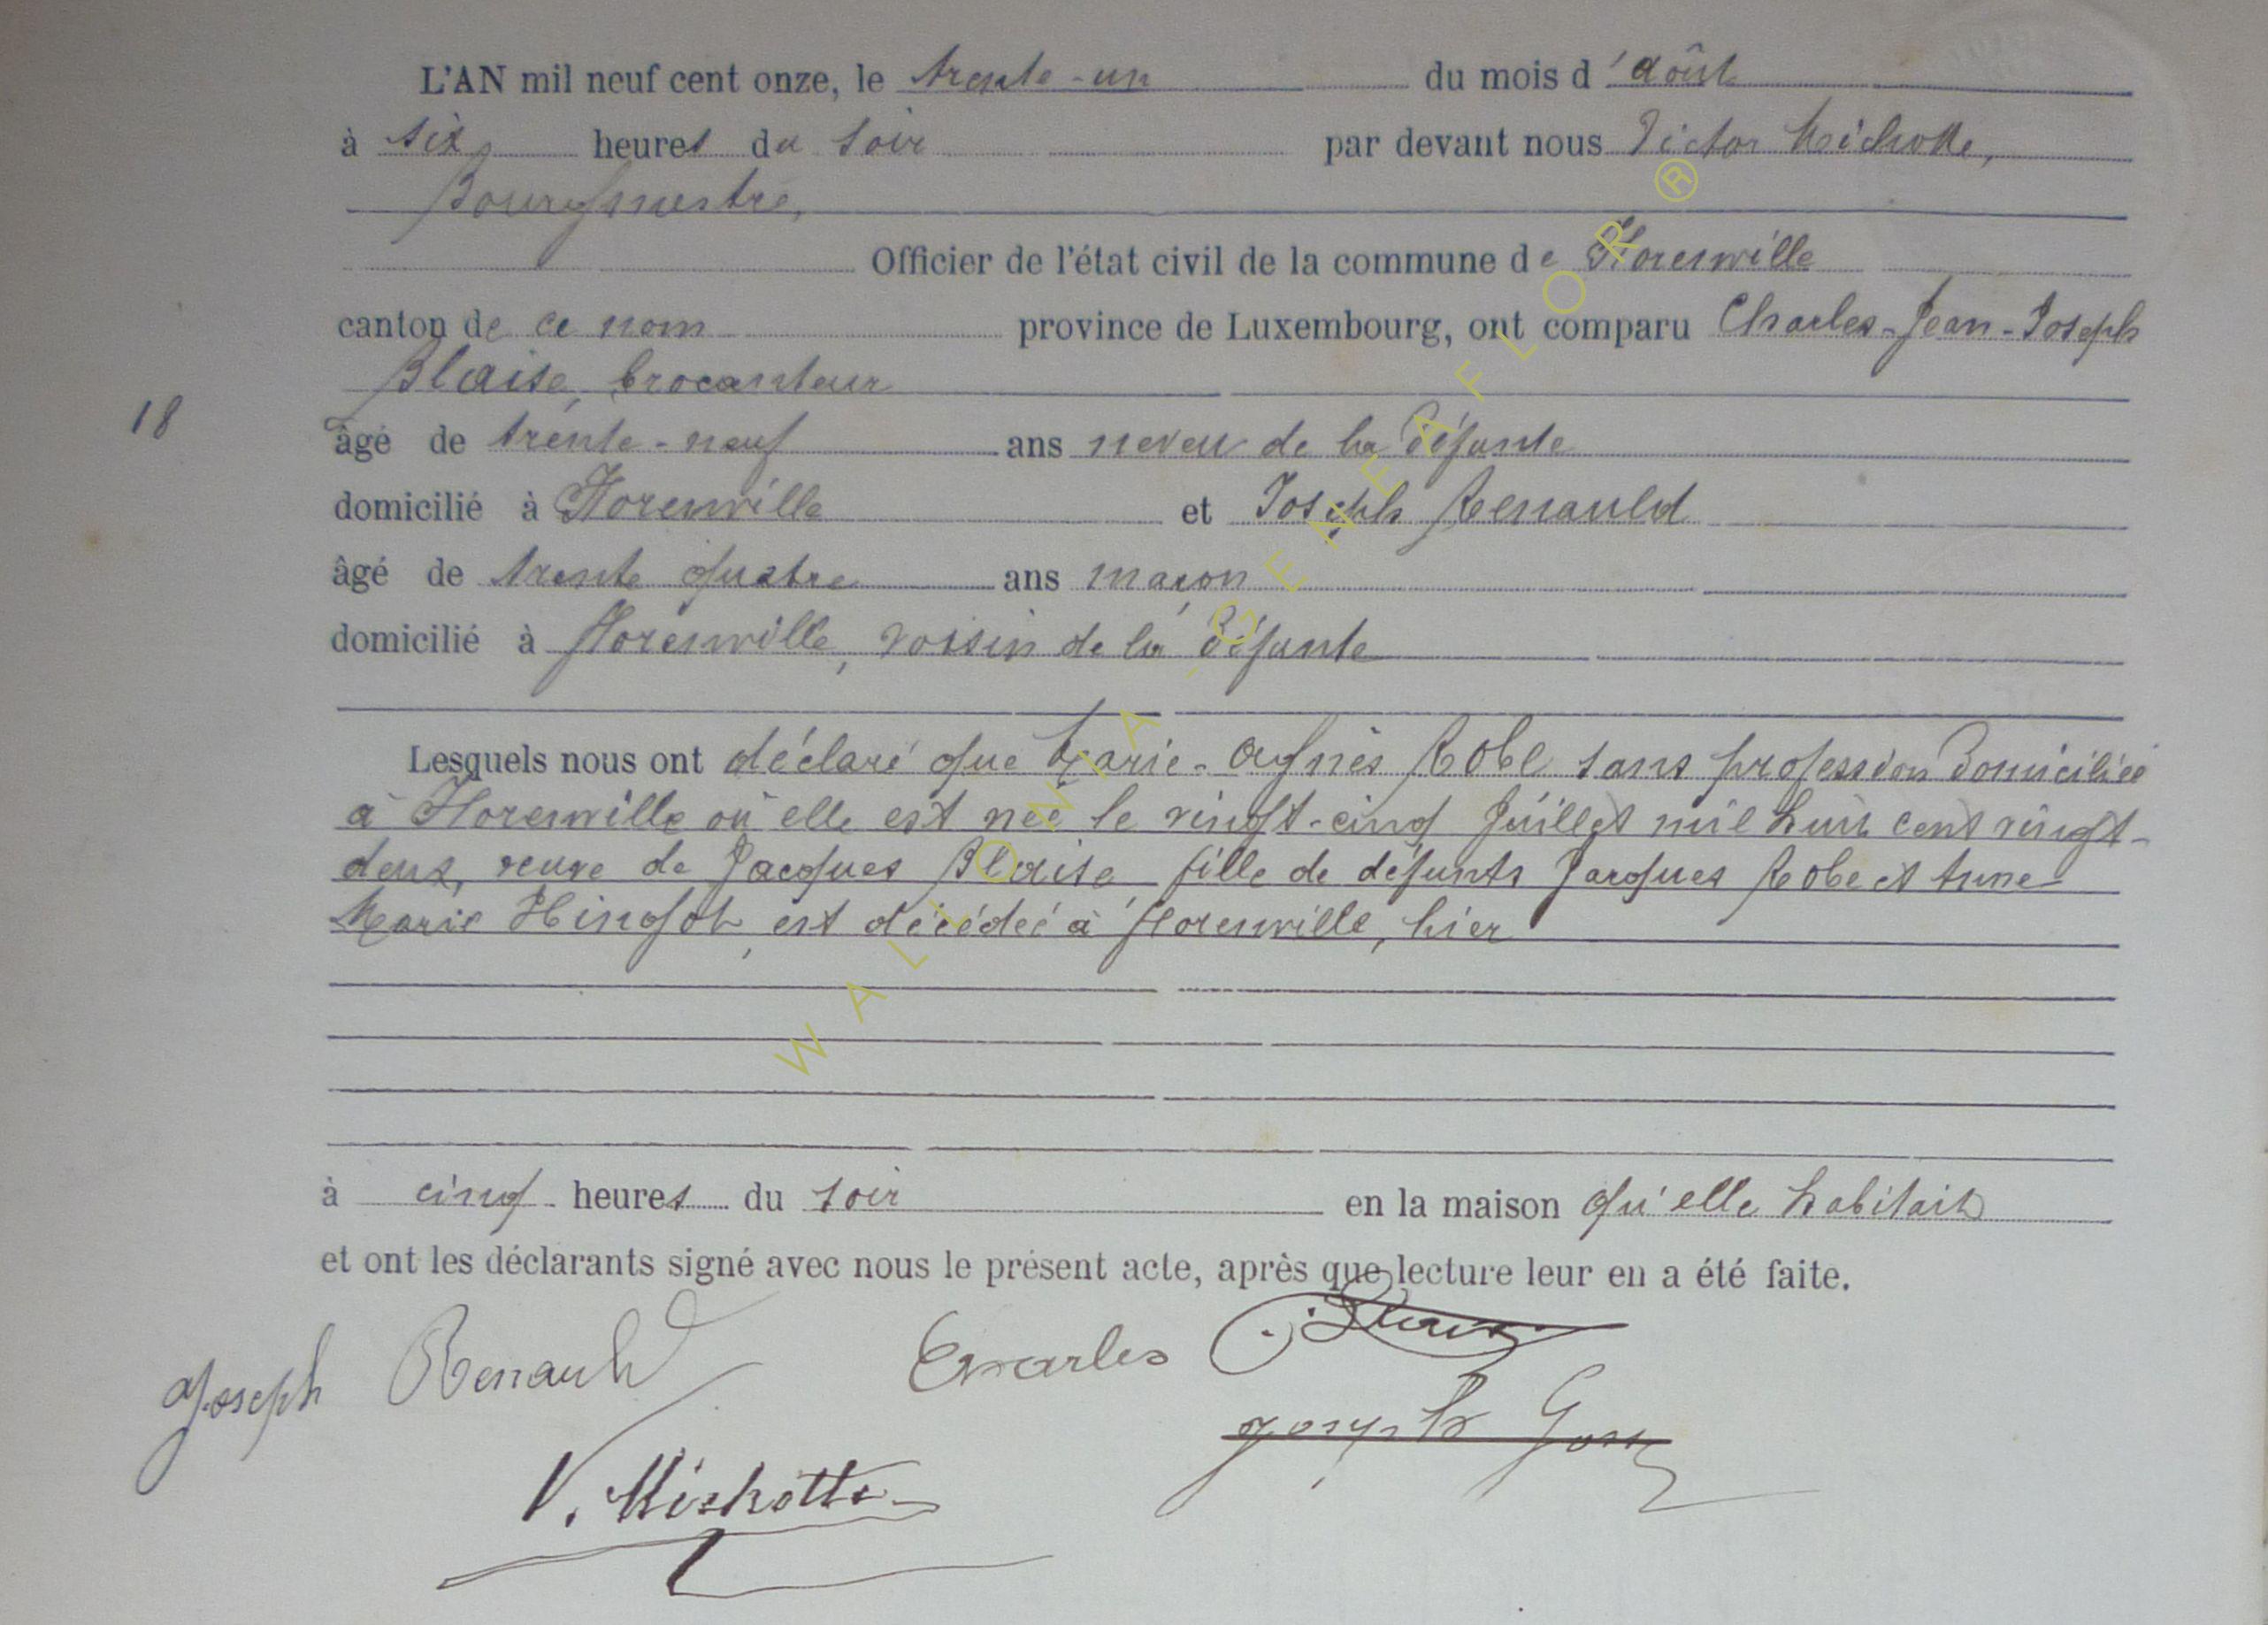 L'AN mil neuf cent onze, le trente-un du mois d'août
à six heures du soir par devant nous Victor Michotte,
Bourgmestre,
Officier de l'état civil de la commune de Florenville
canton de ce nom province de Luxembourg, ont comparu Charles-Jean-Joseph
Blaise, brocanteur
18
âgé de trente-neuf ans neveu de la défunte
domicilié à Florenville et Joseph Renauld
âgé de trente quatre ans maçon
domicilié à Florenville, voisin de la défunte
Lesquels nous ont déclaré que Marie-Agnès Robe sans profession domiciliée
à Florenville où elle est née le vingt-cinq juillet mil huit cent vingt-
deux, veuve de Jacques Blaise fille de défunts Jacques Robe et Anne-
Marie Hingot, est décédée à Florenville, hier
à cinq heures du soir en la maison qu'elle habitait
et ont les déclarants signé avec nous le présent acte, après que lecture leur en a été faite.
Joseph Renauld Charles Blaise
Joseph
V. Michotte
WALLONIA GENEAFLOR ®